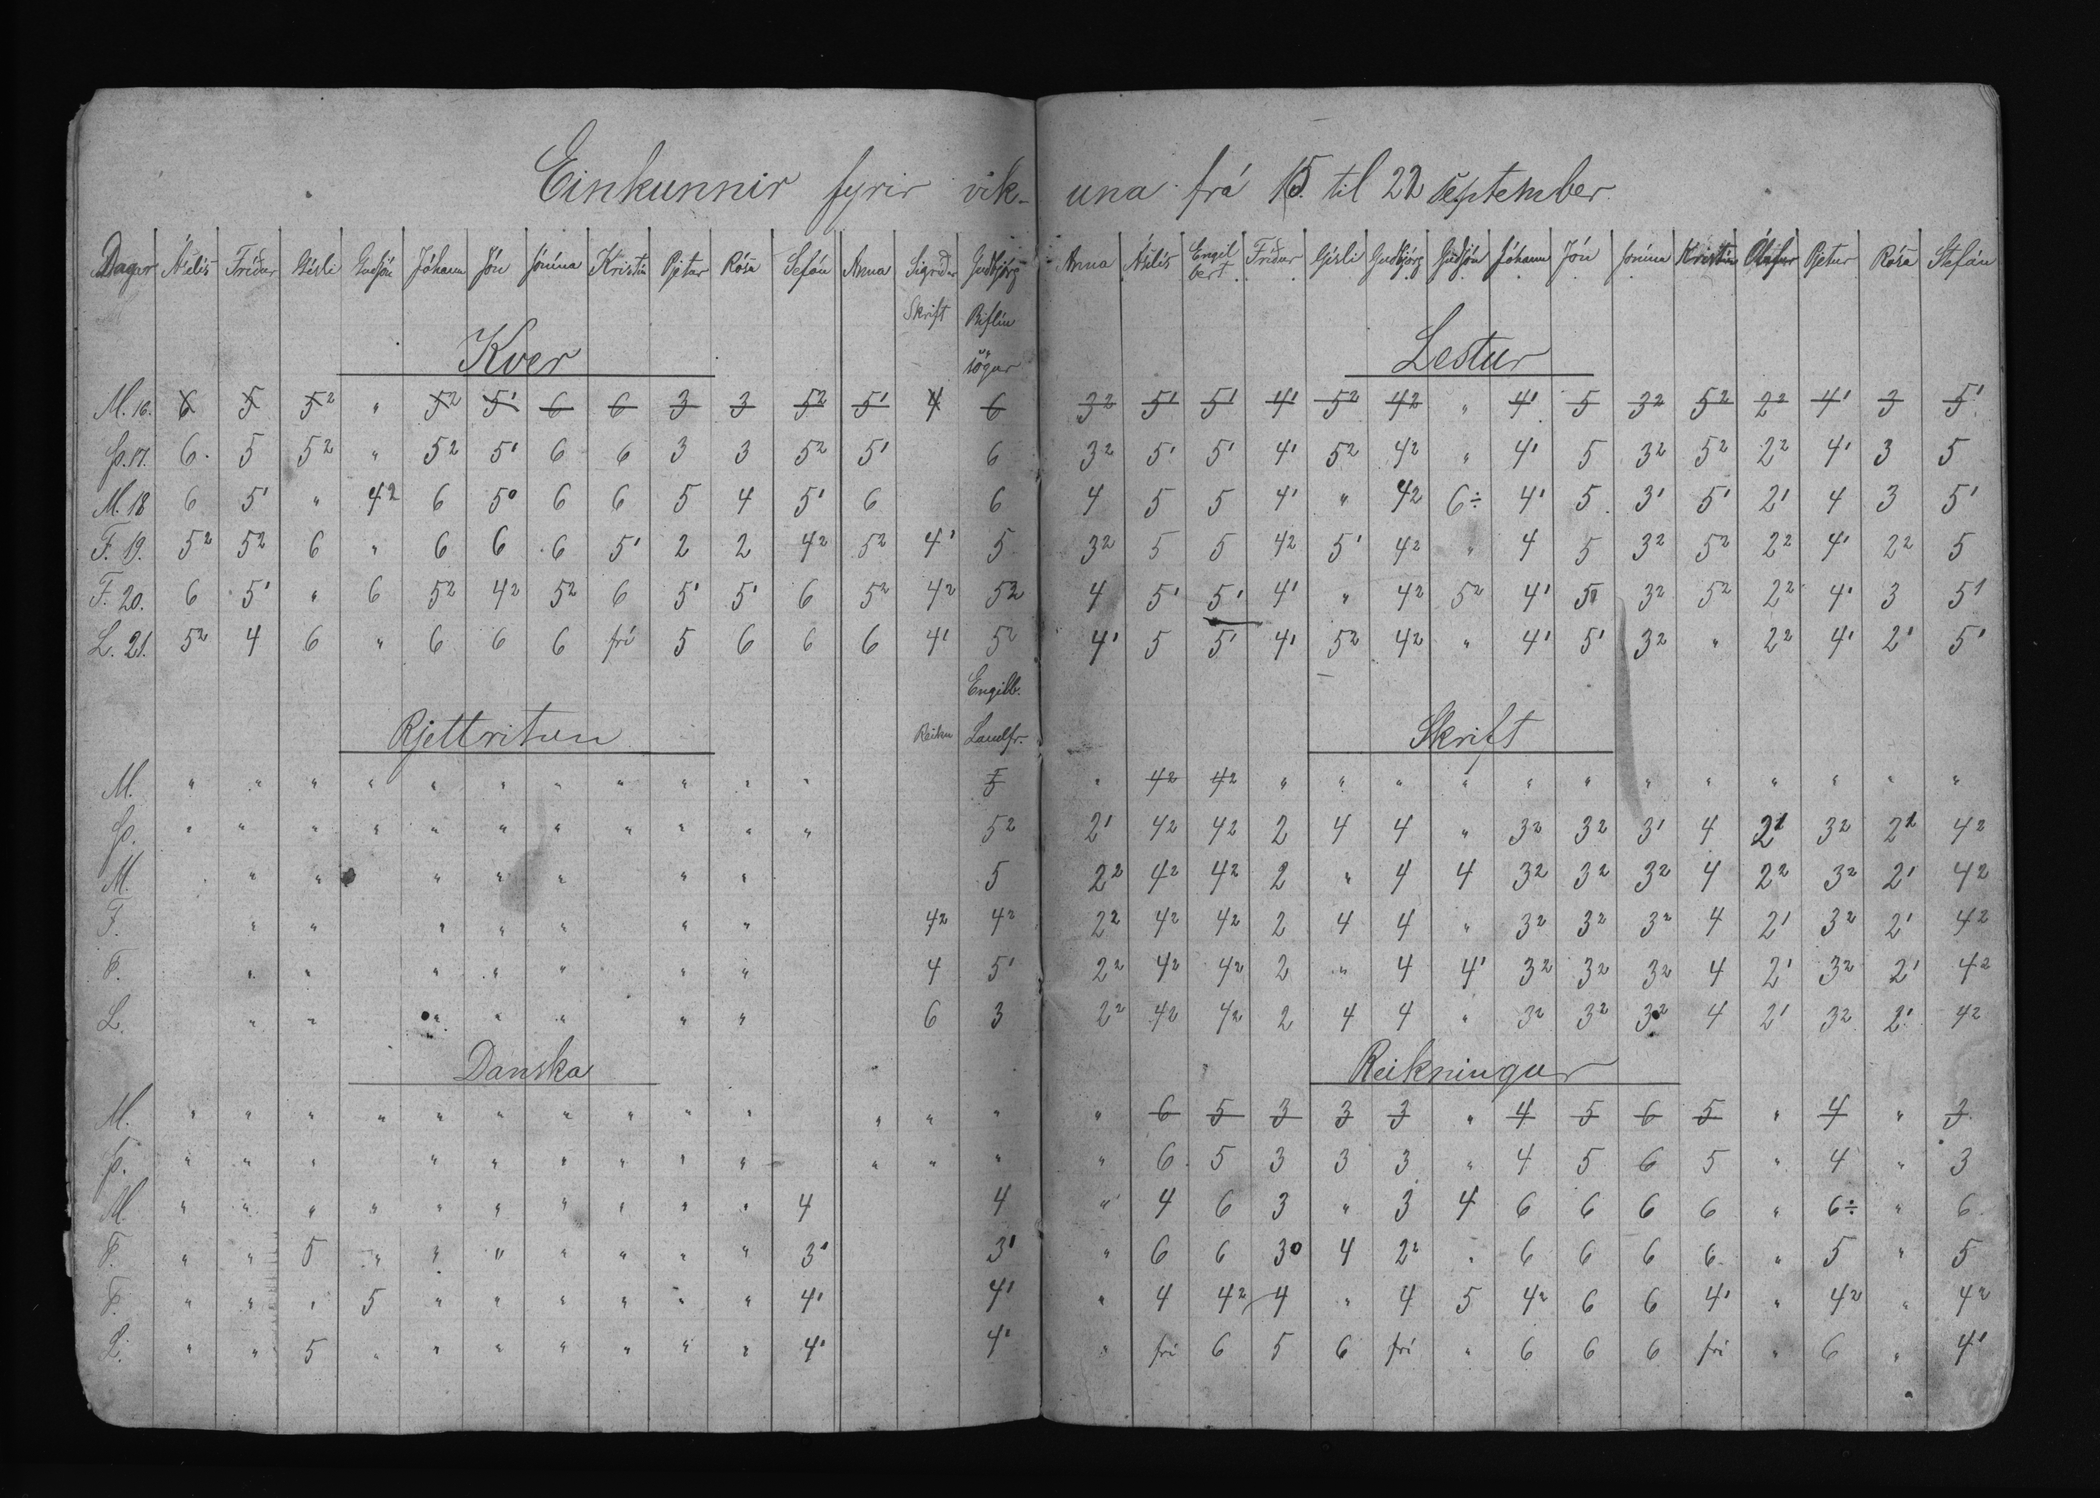 Einkunnir fyrir vik- una frá 15. til 22 september
Dagar Ásdís Fríður Gísli Guðjón Jóhann Jón Jónína Kristín Pjetur Rósa Sefán Anna Sigríður Guðbjörg
Skrift Biflíu
sögur
Kver
M. 16. 6 5 5² " 5² 5¹ 6 6 3 3 5² 5¹ 4 6
Þ. 17. 6 5 5² " 5² 5¹ 6 6 3 3 5² 5¹ 6
M. 18 6 5¹ " 4² 6 5⁰ 6 6 5 4 5¹ 6 6
F. 19. 5² 5² 6 " 6 6 6 5¹ 2 2 4² 5² 4¹ 5
F. 20. 6 5¹ " 6 5² 4² 5² 6 5¹ 5¹ 6 5² 4² 5²
L. 21. 5² 4 6 " 6 6 6 frí 5 6 6 6 4¹ 5²
Engilb.
Rjettritun Reikn Landfr.
M. " " " " " " " " " " " 5
Þ. " " " " " " " " " " " 5²
M. " " " " " " " 5
F. " " " " " " " 4² 4²
F. " " " " " " " 4 5¹
L. " " " " " " " 6 3
Danska
M. " " " " " " " " " " " " "
Þ. " " " " " " " " " " " "
M. " " " " " " " " " " 4 4
F. " " 5 " " " " " " " 3¹ 3¹
F. " " " 5 " " " " " " 4¹ 4¹
L. " " 5 " " " " " " " 4¹ 4¹
Anna Ásdís Engil Fríður Gísli Guðbjörg Guðjón Jóhann Jón Jónína Kristín Ólafur Pjetur Rósa Stefán
bert
Lestur
3² 5¹ 5¹ 4¹ 5² 4² " 4¹ 5 3² 5² 2² 4¹ 3 5¹
3² 5¹ 5¹ 4¹ 5² 4² " 4¹ 5 3² 5² 2² 4¹ 3 5
4 5 5 4¹ " 4² 6÷ 4¹ 5 3¹ 5¹ 2¹ 4 3 5¹
3² 5 5 4² 5¹ 4² " 4 5 3² 5² 2² 4¹ 2² 5
4 5¹ 5¹ 4¹ " 4² 5² 4¹ 5¹ 3² 5² 2² 4¹ 3 5¹
4¹ 5 5¹ 4¹ 5² 4² " 4¹ 5¹ 3² " 2² 4¹ 2¹ 5¹
Skrift
" 4² 4² " " " " " " " " " " " "
2¹ 4² 4² 2 4 4 " 3² 3² 3¹ 4 2¹ 3² 2¹ 4²
2² 4² 4² 2 " 4 4 3² 3² 3² 4 2² 3² 2¹ 4²
2² 4² 4² 2 4 4 " 3² 3² 3² 4 2¹ 3² 2¹ 4²
2² 4² 4² 2 " 4 4¹ 3² 3² 3² 4 2¹ 3² 2¹ 4²
2² 4² 4² 2 4 4 " 3² 3² 3² 4 2¹ 3² 2¹ 4²
Reikningur
" 6 5 3 3 3 " 4 5 6 5 " 4 " 3
" 6 5 3 3 3 " 4 5 6 5 " 4 " 3
" 4 6 3 " 3 4 6 6 6 6 " 6÷ " 6
" 6 6 3⁰ 4 2² " 6 6 6 6 " 5 " 5
" 4 4² 4 " 4 5 4² 6 6 4¹ " 4² " 4²
" frí 6 5 6 frí " 6 6 6 frí " 6 " 4¹